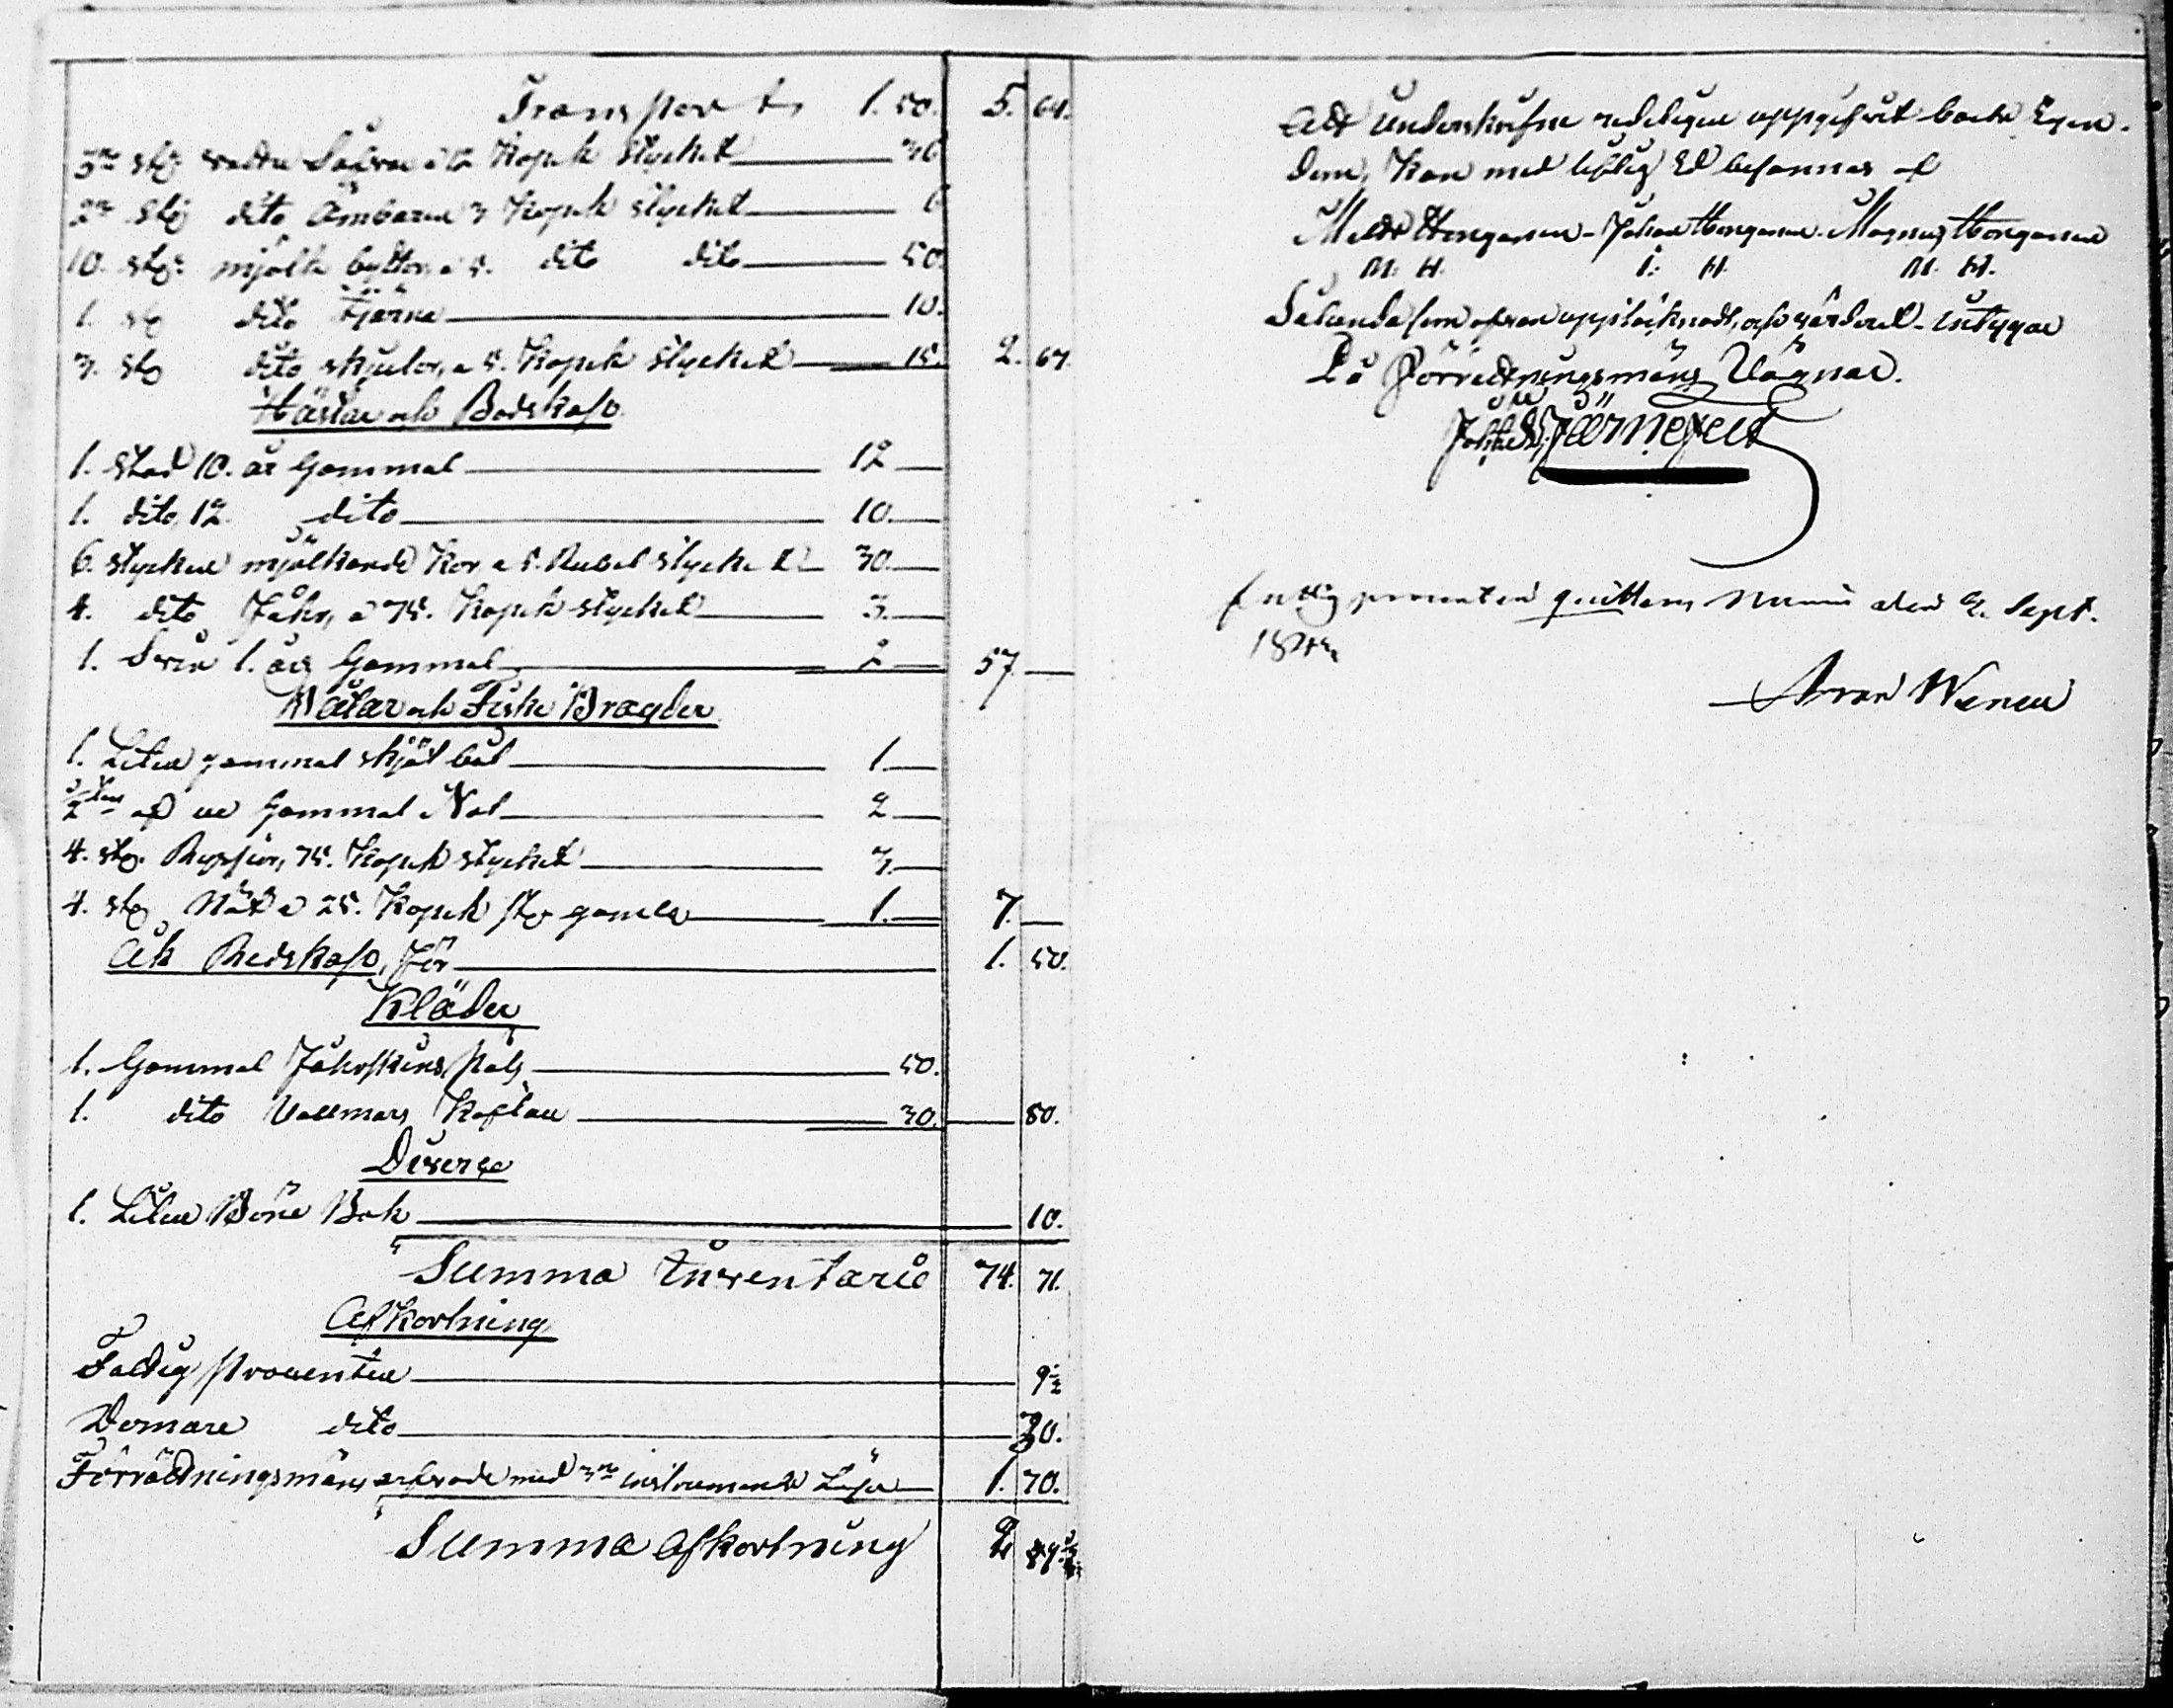 Transport, 1. 50. 5. 64.
3ne st: watten Såar a 12 Kopek stycket 36
2ne st: dito Ämbaren 3 Kopek stycket 6
10. st: mjölk byttor, a 5. dito dito 50.
1. st dito Tjärna 10.
3. st dito skjulor, a 5. Kopek stycket 15. 2. 67.
Hästar och Bodskap
1. stod 10. år Gammal 12
1. dito, 12. dito 10.
6. stycken mjölkande Kor, a 5. Rubel stycket 30.
4. dito Fåhr, a 75. Kopek stycket 3.
1. Svin 1. års Gammal 2 57.
Båtar och Fiske Bragder
1. Liten gammal skjöt båt 1.
af en Gammal Not 2
4. st. Rysjior, 75. Kopek stycket 3.
4. st, Nät a 25. Kopek st gamla 1. 7.
Åk Redskap, för 1. 50.
Kläder
1. Gammal Fåhrskins päls 50.
1. dito Vallmars Kaftan 30. 80.
Diverse
1. Liten Böne Bok 10.
Summa Inventarie 74. 71.
Afkortning
Fattig procenten 9½
Domare dito 30.
Förrättningsmäns arfvode med 3ne instrumenters Lösen 1. 70.
Summa Afkortning 2
Att underskrifne redeligen uppgifvit boets Egen-
dom, kan med liflig Ed besannas af
Matts Honganen - Johan Honganen. Magnus Honganen
M. H. I. H. M. H.
Sålunda som ofvan upptäcknadt, och värderat - intygar
På Förrättningsmäns Vägnar.
Järnefelt
fattig procenten quitteras Nurmis den 2. Sept.
Wenen